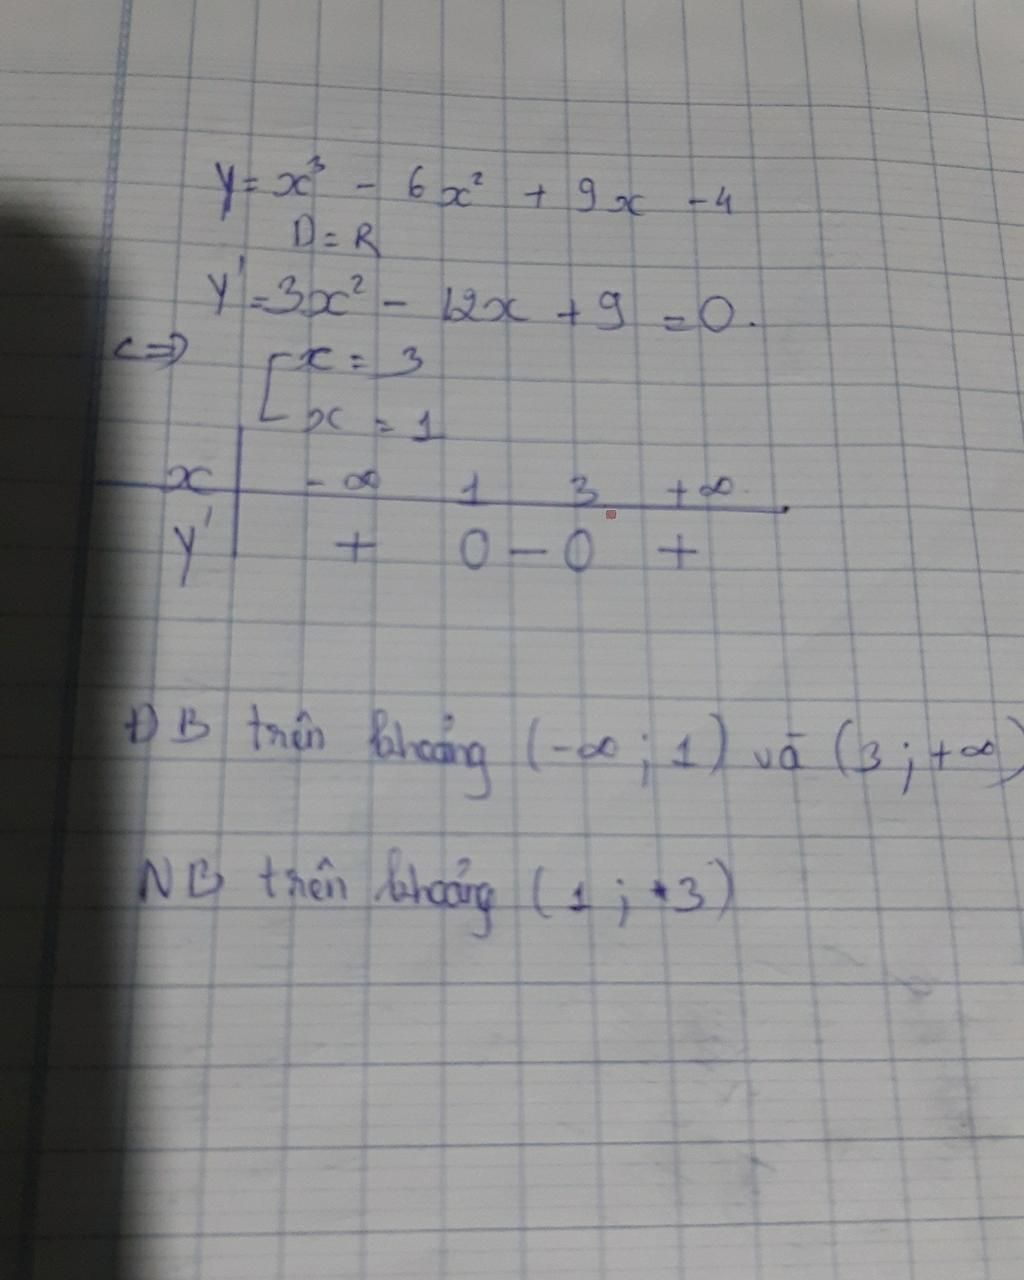 y = x³ - 6x² + 9x - 4
D = R
y' = 3x² - 12x + 9 = 0.
<=> [ x = 3
x = 1
x | -∞ 1 3 +∞
y' | + 0 - 0 +
ĐB trên khoảng (-∞ ; 1) và (3 ; +∞)
NB trên khoảng (1 ; 3)